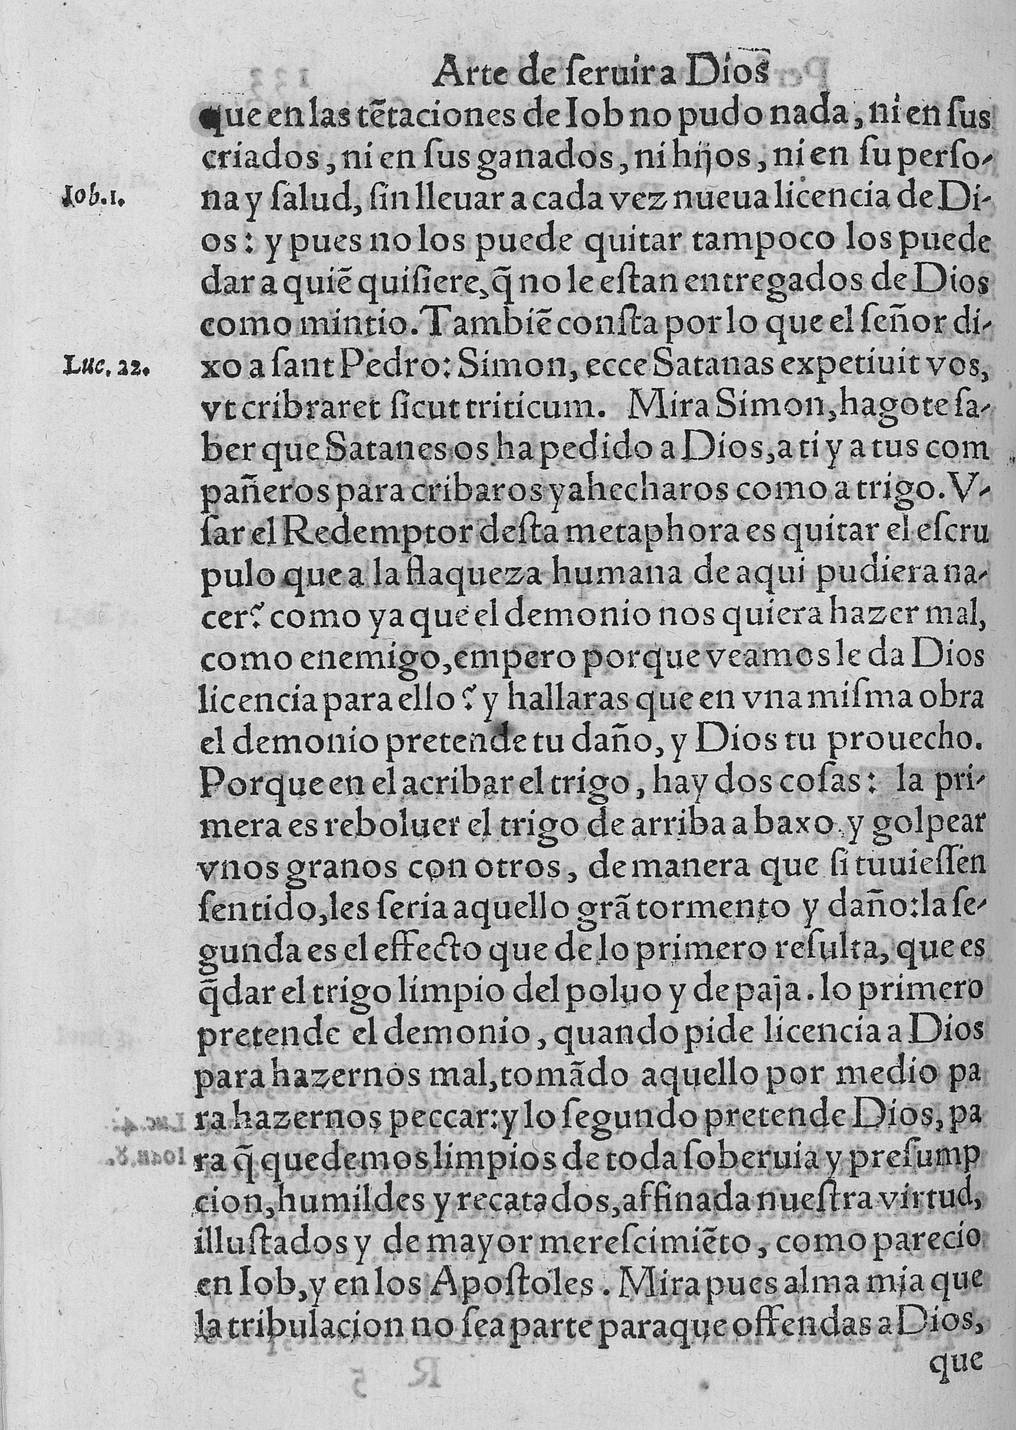 Arte de ſeruir a Dios
que en las tẽtaciones de Iob no pudo nada, ni en ſus
criados, ni en ſus ganados, ni hijos, ni en ſu perſo-
Iob.1.
na y ſalud, ſin lleuar a cada vez nueua licencia de Di-
os: y pues no los puede quitar tampoco los puede
dar a quiẽ quiſiere, q̃ no le eſtan entregados de Dios
como mintio. Tambiẽ conſta por lo que el ſeñor di-
Luc. 22.
xo a ſant Pedro: Simon, ecce Satanas expetiuit vos,
vt cribraret ſicut triticum. Mira Simon, hagote ſa-
ber que Satanes os ha pedido a Dios, a ti y a tus com
pañeros para cribaros y ahecharos como a trigo. V-
ſar el Redemptor deſta metaphora es quitar el eſcru
pulo que a la flaqueza humana de aqui pudiera na-
cer? como ya que el demonio nos quiera hazer mal,
como enemigo, empero porque veamos le da Dios
licencia para ello? y hallaras que en vna miſma obra
el demonio pretende tu daño, y Dios tu prouecho.
Porque en el acribar el trigo, hay dos coſas: la pri-
mera es reboluer el trigo de arriba a baxo, y golpear
vnos granos con otros, de manera que ſi tuuieſſen
ſentido, les ſeria aquello grã tormento y daño: la ſe-
gunda es el effecto que de lo primero reſulta, que es
q̃dar el trigo limpio del poluo y de paja. lo primero
pretende el demonio, quando pide licencia a Dios
para hazernos mal, tomãdo aquello por medio pa
ra hazernos peccar: y lo ſegundo pretende Dios, pa
ra q̃ quedemos limpios de toda ſoberuia y preſump
cion, humildes y recatados, affinada nueſtra virtud,
illuſtados y de mayor mereſcimiẽto, como parecio
en Iob, y en los Apoſtoles. Mira pues alma mia que
la tribulacion no ſea parte paraque offendas a Dios,
que